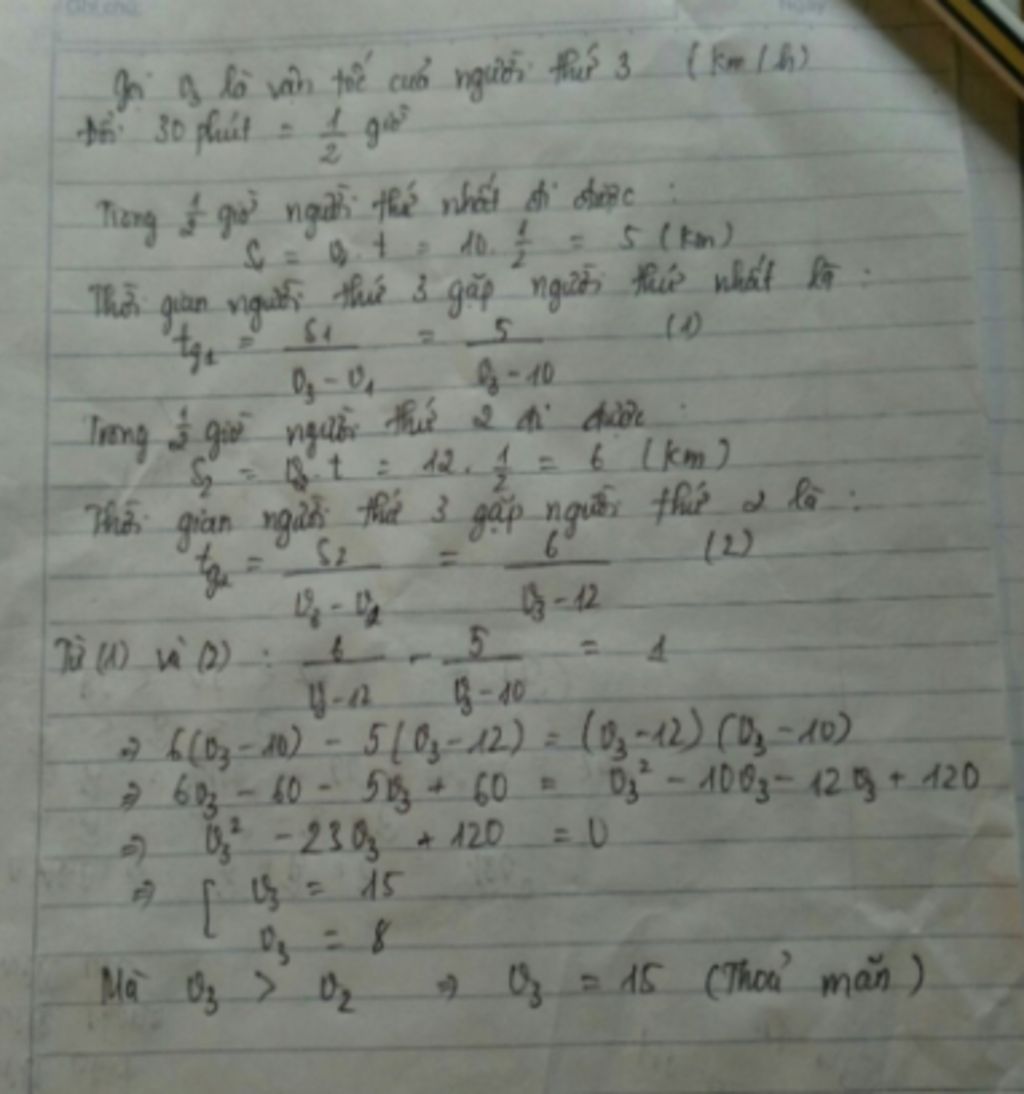 Gọi v3 là vận tốc của người thứ 3 (km/h)
Đổi 30 phút = 1/2 giờ
Trong 1/2 giờ người thứ nhất đi được :
S1 = v1.t = 10. 1/2 = 5 (km)
Thời gian người thứ 3 gặp người thứ nhất là :
tg1 = S1/(v3 - v1) = 5/(v3 - 10) (1)
Trong 1/2 giờ người thứ 2 đi được :
S2 = v2.t = 12. 1/2 = 6 (km)
Thời gian người thứ 3 gặp người thứ 2 là :
tg2 = S2/(v3 - v2) = 6/(v3 - 12) (2)
Từ (1) và (2) : 6/(v3 - 12) - 5/(v3 - 10) = 1
⇒ 6(v3 - 10) - 5(v3 - 12) = (v3 - 12)(v3 - 10)
⇒ 6v3 - 60 - 5v3 + 60 = v3² - 10v3 - 12v3 + 120
⇒ v3² - 23v3 + 120 = 0
⇒ [ v3 = 15
v3 = 8
Mà v3 > v2 ⇒ v3 = 15 (Thoả mãn)